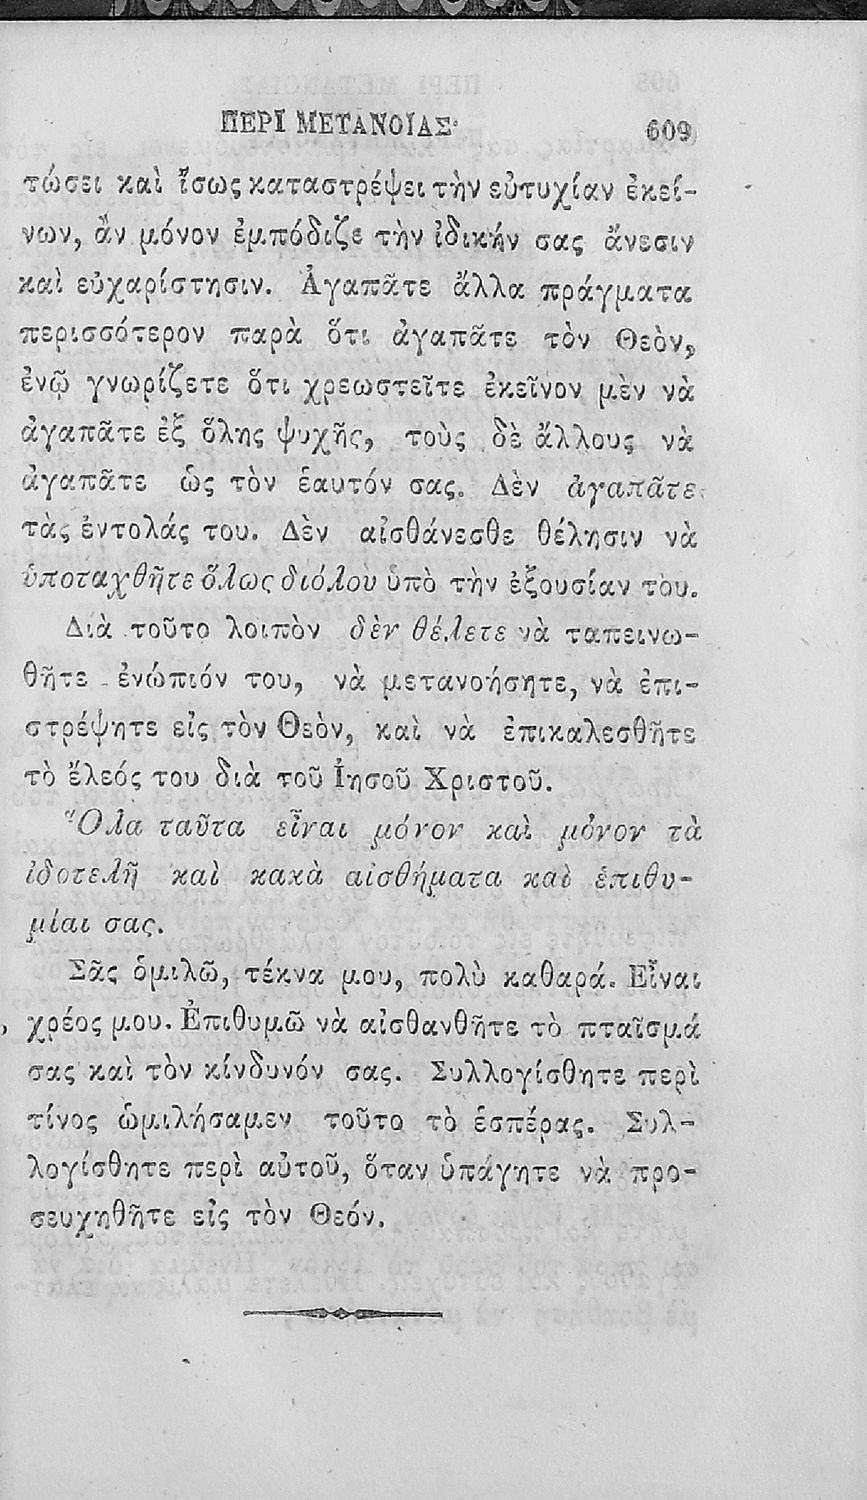 ΠΕΡΙ ΜΕΤΑΝΟΙΑΣ· 609
τώσει καὶ ἴσως καταστρέψει τὴν εὐτυχίαν ἐκεί-
νων, ἂν μόνον ἐμπόδιζε τὴν ἰδικήν σας ἄνεσιν
καὶ εὐχαρίστησιν. Ἀγαπᾶτε ἄλλα πράγματα
περισσότερον παρὰ ὅτι ἀγαπᾶτε τὸν Θεὸν,
ἐνῷ γνωρίζετε ὅτι χρεωστεῖτε ἐκεῖνον μὲν νὰ
ἀγαπᾶτε ἐξ ὅλης ψυχῆς, τοὺς δὲ ἄλλους νὰ
ἀγαπᾶτε ὡς τὸν ἑαυτόν σας. Δὲν ἀγαπᾶτε
τὰς ἐντολάς του. Δὲν αἰσθάνεσθε θέλησιν νὰ
ὑποταχθῆτε ὅλως διόλου ὑπὸ τὴν ἐξουσίαν του.
Διὰ τοῦτο λοιπὸν δὲν θέλετε νὰ ταπεινω-
θῆτε ἐνώπιόν του, νὰ μετανοήσητε, νὰ ἐπι-
στρέψητε εἰς τὸν Θεὸν, καὶ νὰ ἐπικαλεσθῆτε
τὸ ἔλεός του διὰ τοῦ Ἰησοῦ Χριστοῦ.
Ὅλα ταῦτα εἶναι μόνον καὶ μόνον τὰ
ἰδοτελῆ καὶ κακὰ αἰσθήματα καὶ ἐπιθυ-
μίαι σας.
Σᾶς ὁμιλῶ, τέκνα μου, πολὺ καθαρά. Εἶναι
χρέος μου. Ἐπιθυμῶ νὰ αἰσθανθῆτε τὸ πταῖσμά
σας καὶ τὸν κίνδυνόν σας. Συλλογίσθητε περὶ
τίνος ὡμιλήσαμεν τοῦτο τὸ ἑσπέρας. Συλ-
λογίσθητε περὶ αὐτοῦ, ὅταν ὑπάγητε νὰ προ-
σευχηθῆτε εἰς τὸν Θεόν.